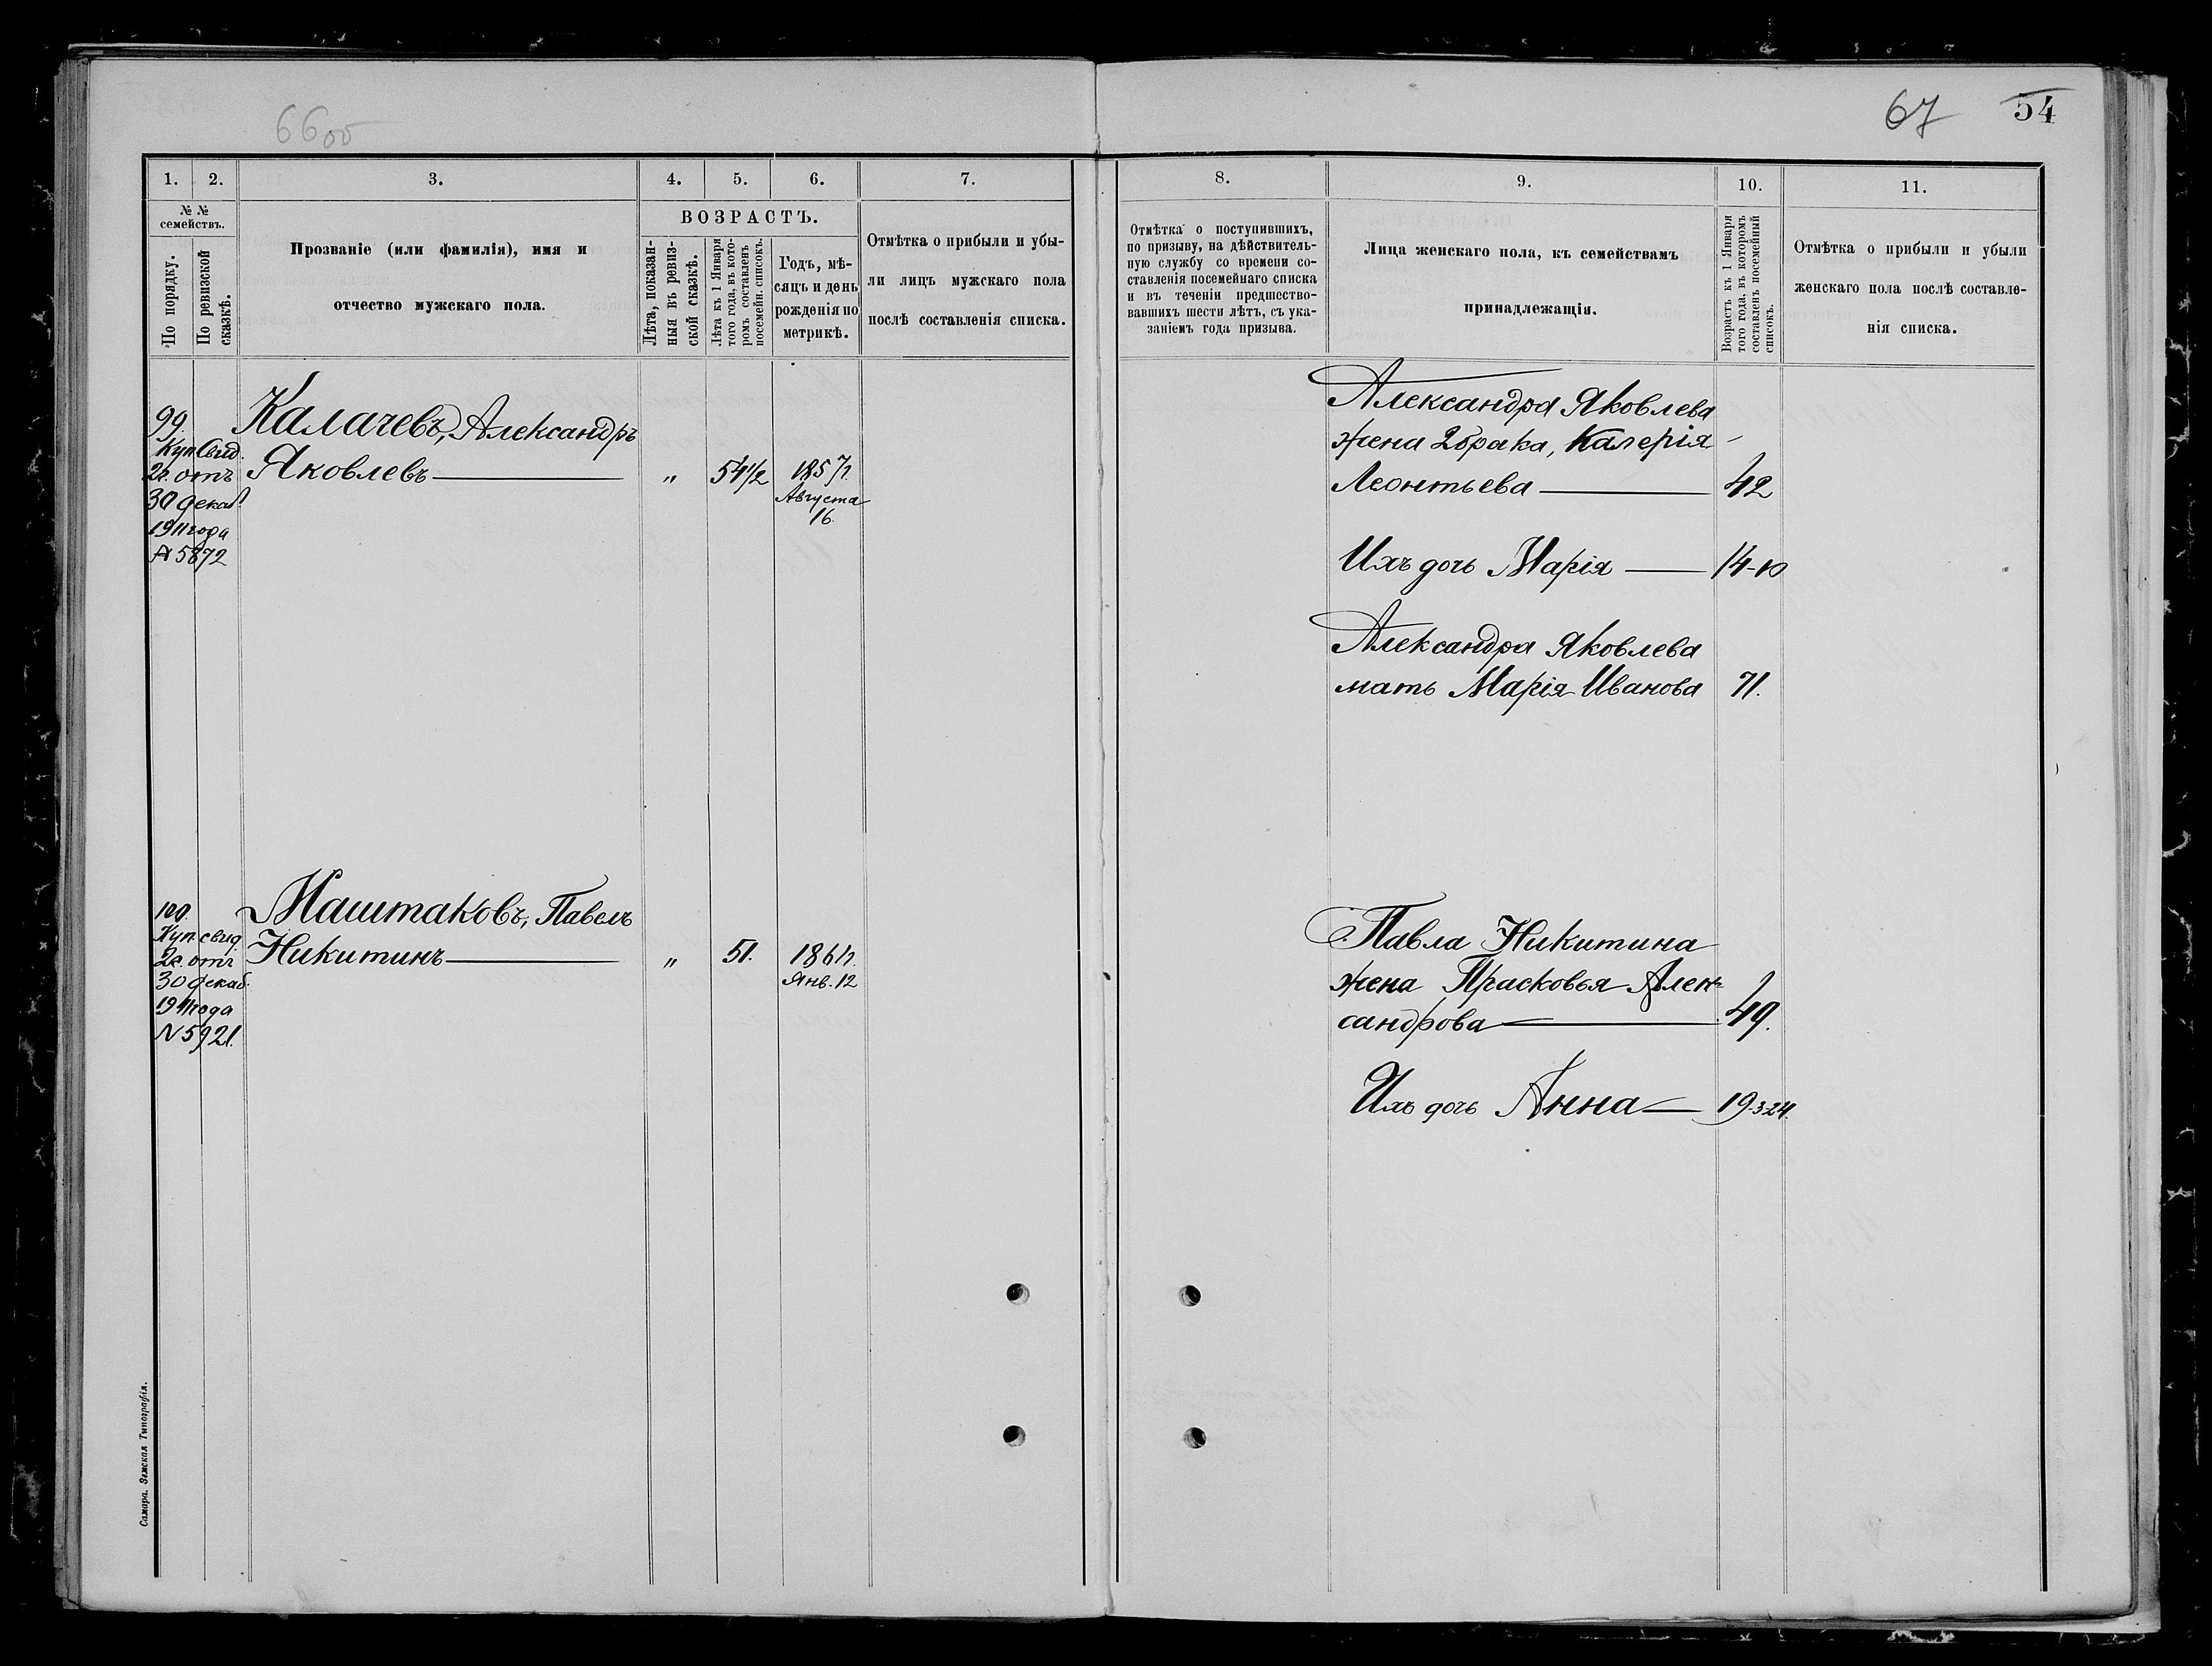 66об
67 54
1. 2. 3. 4. 5. 6. 7.
№ №
семействъ.
По порядку.
По ревизской
сказкѣ.
Прозваніе (или фамилія), имя и
отчество мужскаго пола.
ВОЗРАСТЪ.
Лѣта, показан-
ныя въ ревиз-
ской сказкѣ.
Лѣта къ 1 Января
того года, въ кото-
ромъ составленъ
посемейн. списокъ.
Годъ, мѣ-
сяцъ и день
рожденія по
метрикѣ.
Отмѣтка о прибыли и убы-
ли лицъ мужскаго пола
послѣ составленія списка.
99.
Куп. Свид.
2г. отъ
30 декаб.
1911 года
№ 5872
Калачевъ, Александръ
Яковлевъ
„ 54 1/2 1857 г.
Августа
16.
100.
Куп. свид.
2г. отъ
30 декаб.
1911 года
№ 5921.
Маштаковъ, Павелъ
Никитинъ
„ 51. 1861 г.
Янв. 12
Самара. Земская Типографія.
8. 9. 10. 11.
Отмѣтка о поступившихъ,
по призыву, на дѣйствитель-
ную службу со времени со-
ставленія посемейнаго списка
и въ теченіи предшество-
вавшихъ шести лѣтъ, съ ука-
заніемъ года призыва.
Лица женскаго пола, къ семействамъ
принадлежащія.
Возрастъ къ 1 Января
того года, въ которомъ
составленъ посемейный
списокъ.
Отмѣтка о прибыли и убыли
женскаго пола послѣ составле-
нія списка.
Александра Яковлева
жена 2 брака, Калерія
Леонтьева 42
Ихъ дочь Марія 14-10
Александра Яковлева
мать Марія Иванова 71.
Павла Никитина
жена Прасковья Алек-
сандрова 49.
Ихъ дочь Анна 19-3-24.